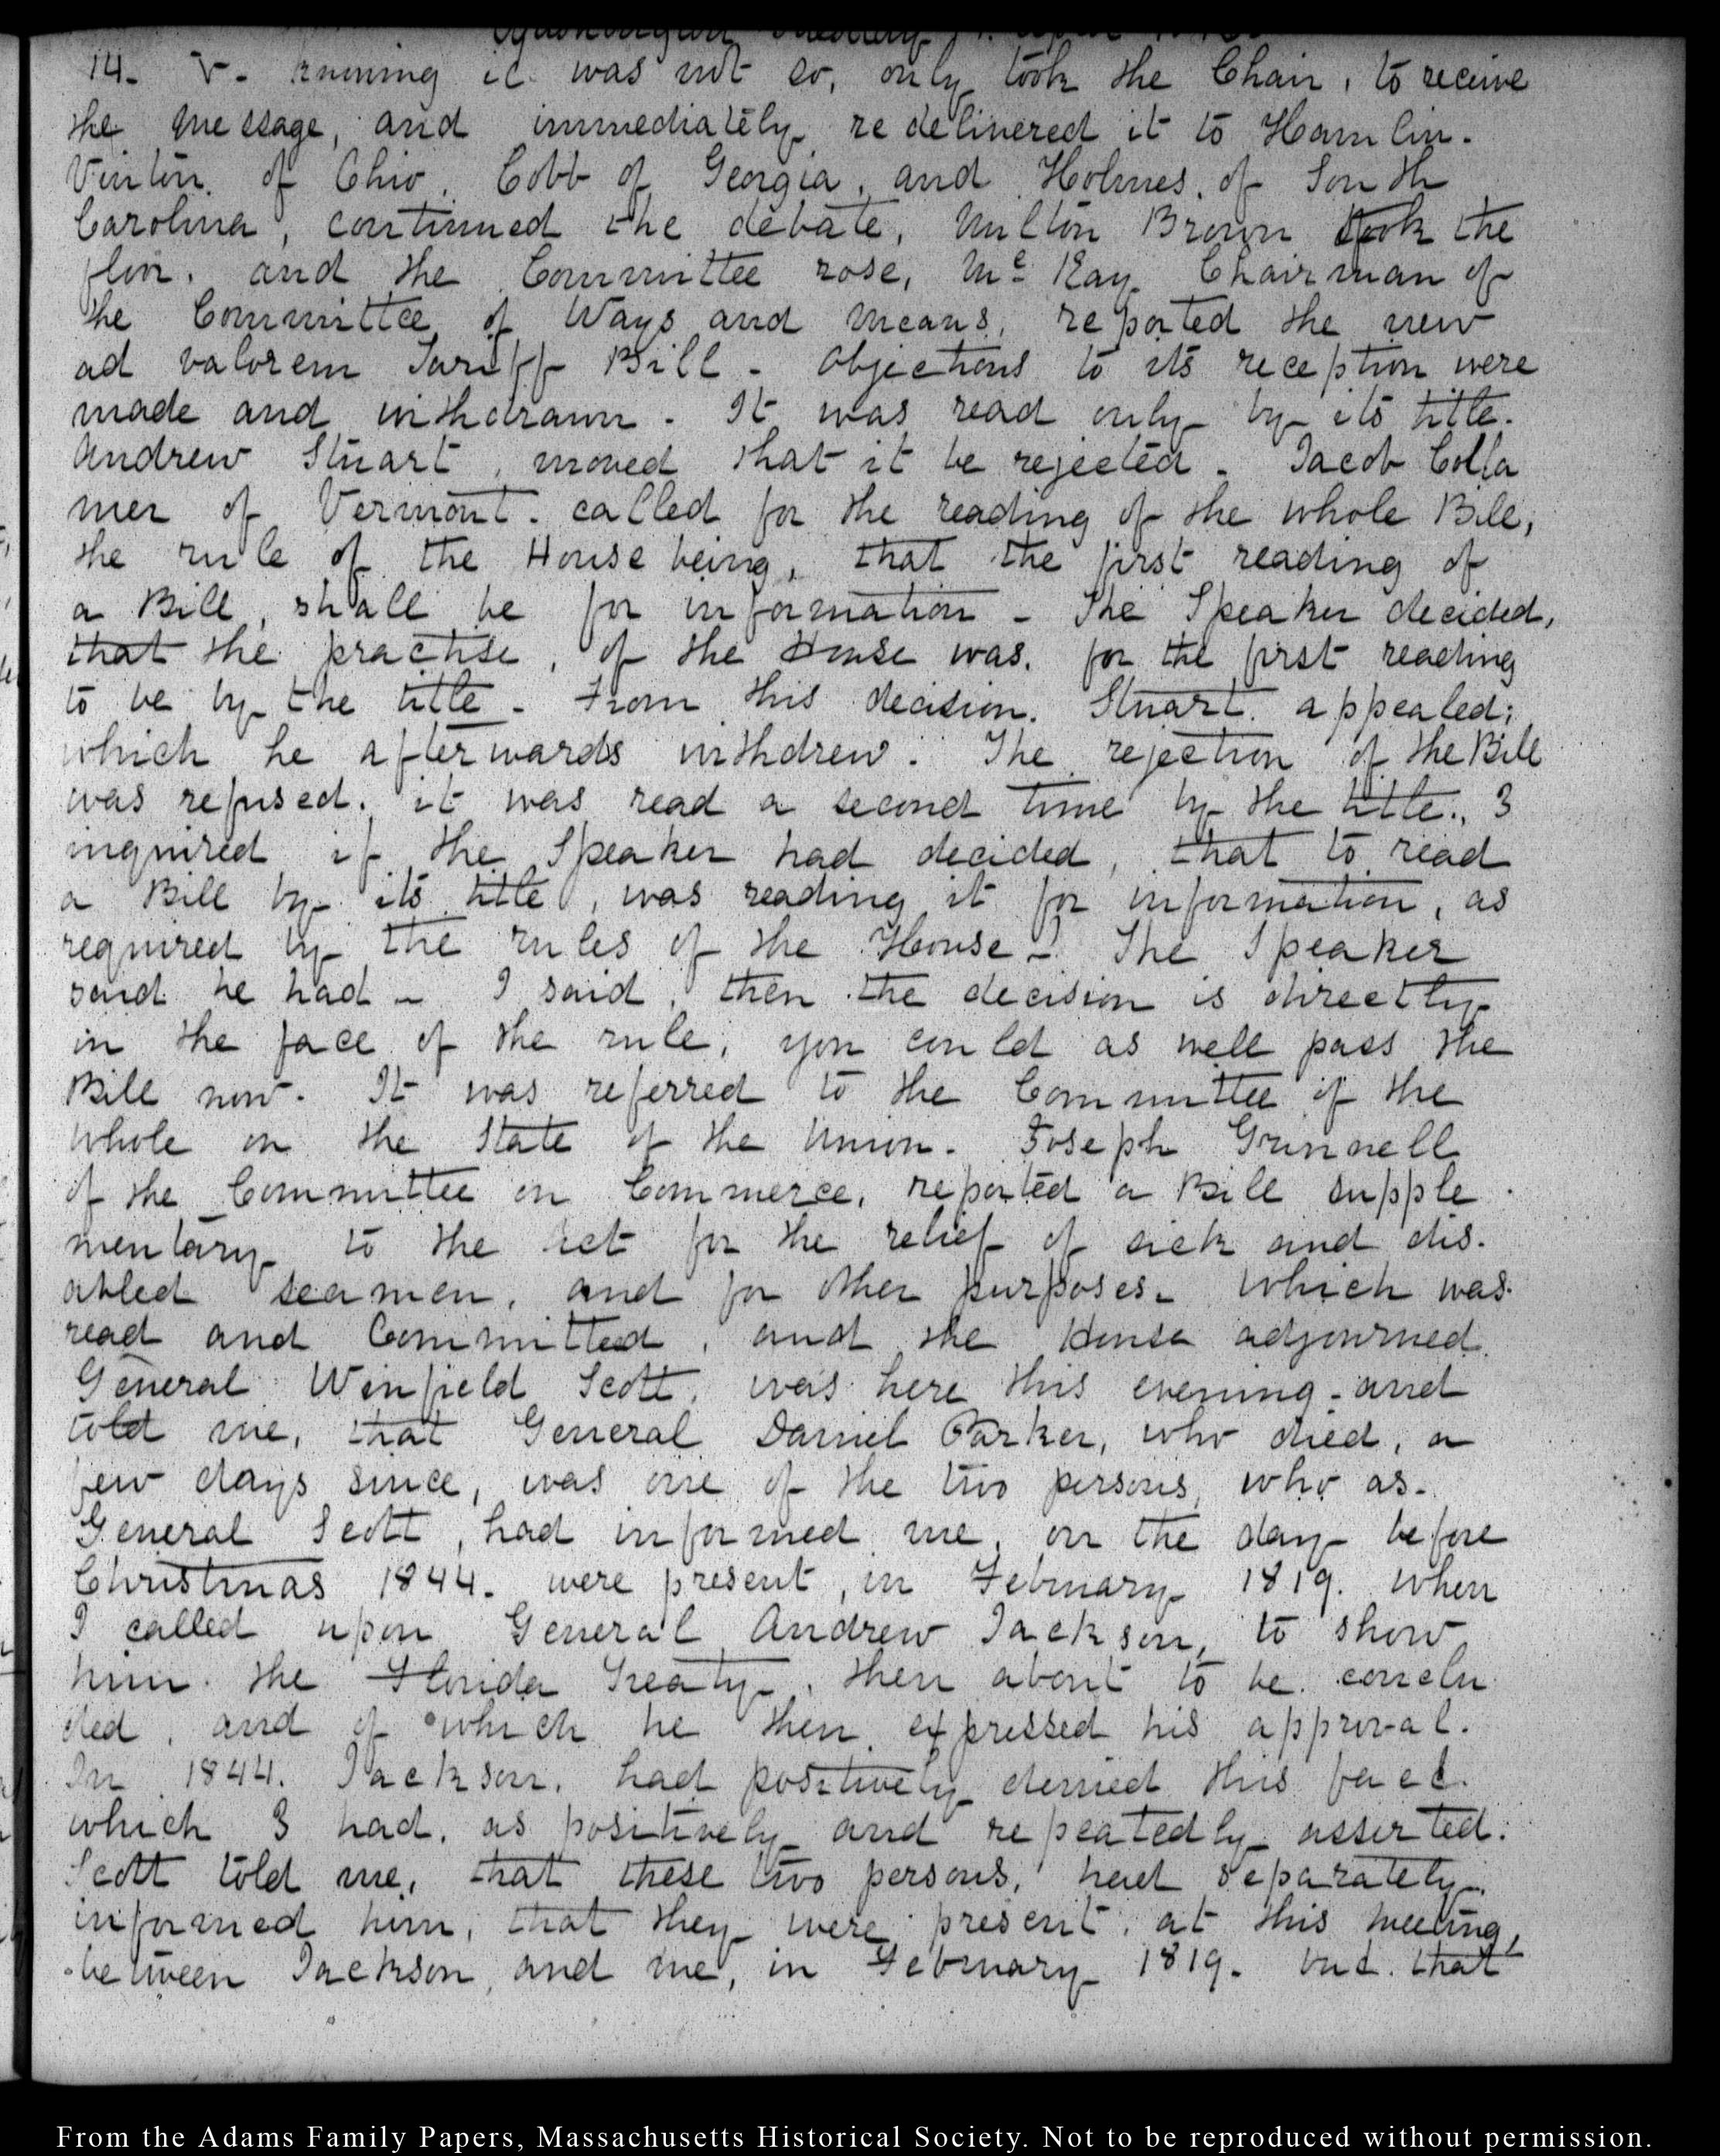 Washington Tuesday 14. April 1846.
14. V. running it was not so, only took the Chair, to receive
the message, and immediately redelivered it to Hamlin.
Vinton of Ohio, Cobb of Georgia, and Holmes, of South
Carolina, continued the debate, Milton Brown took the
floor, and the Committee rose, Mc. Kay Chairman of
the Committee of Ways and Means, reported the new
ad valorem Tariff Bill - Objections to its reception were
made and withdrawn. It was read only by its title.
Andrew Stuart, moved that it be rejected - Jacob Colla
mer of Vermont. called for the reading of the whole Bill,
the rule of the House being, that the first reading of
a Bill, shall be for information - The Speaker decided,
that the practise, of the House was, for the first reading
to be by the title - From this decision. Stuart. appealed;
which he afterwards withdrew. The rejection of the Bill
was refused. it was read a second time by the title., I
inquired if the Speaker had decided, that to read
a Bill by its title, was reading it for information, as
required by the rules of the House -? The Speaker
said he had - I said, then the decision is directly
in the face of the rule, you could as well pass the
Bill now. It was referred to the Committee of the
whole on the State of the Union. Joseph Grinnell
of the Committee on Commerce, reported a Bill supple
mentary to the Act for the relief of sick and dis-
abled seamen, and for other purposes - which was
read and Committed, and the House adjourned.
General Winfield Scott, was here this evening - and
told me, that General Daniel Parker, who died, a
few days since, was one of the two persons, who as -
General Scott, had informed me, on the day before
Christmas 1844. were present, in February 1819. when
I called upon General Andrew Jackson, to show
him the Florida Treaty, then about to be conclu
ded, and of which he then expressed his approval.
In 1844. Jackson, had positively denied this fact.
which I had, as positively and repeatedly asserted.
Scott told me, that these two persons, had separately
informed him, that they were present, at this meeting,
between Jackson, and me, in February 1819. but that
From the Adams Family Papers, Massachusetts Historical Society. Not to be reproduced without permission.